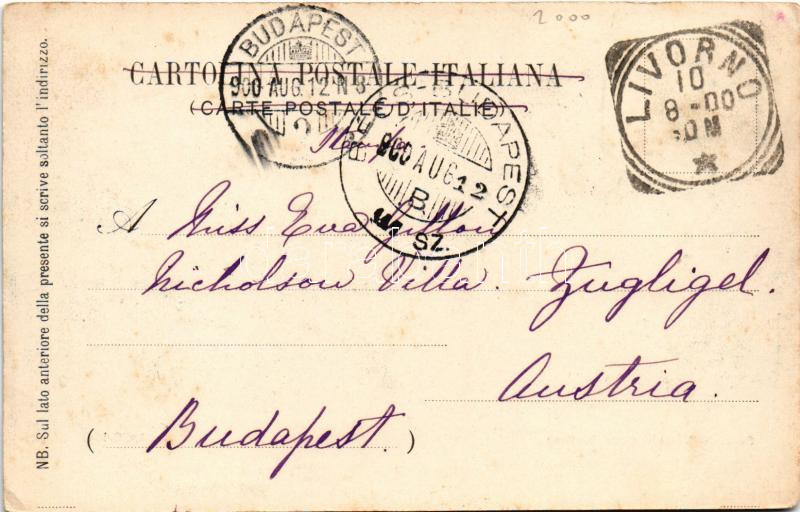 2000
CARTOLINA POSTALE ITALIANA
(CARTE POSTALE D'ITALIE)
BUDAPEST
900 AUG. 12 N 8
BUDAPEST
900 AUG 12
B.
SZ.
LIVORNO
10
8-00
10 M
A Miss Eva
Nicholson Villa. Zugliget.
Austria.
(Budapest.)
NB. Sul lato anteriore della presente si scrive soltanto l'indirizzo.